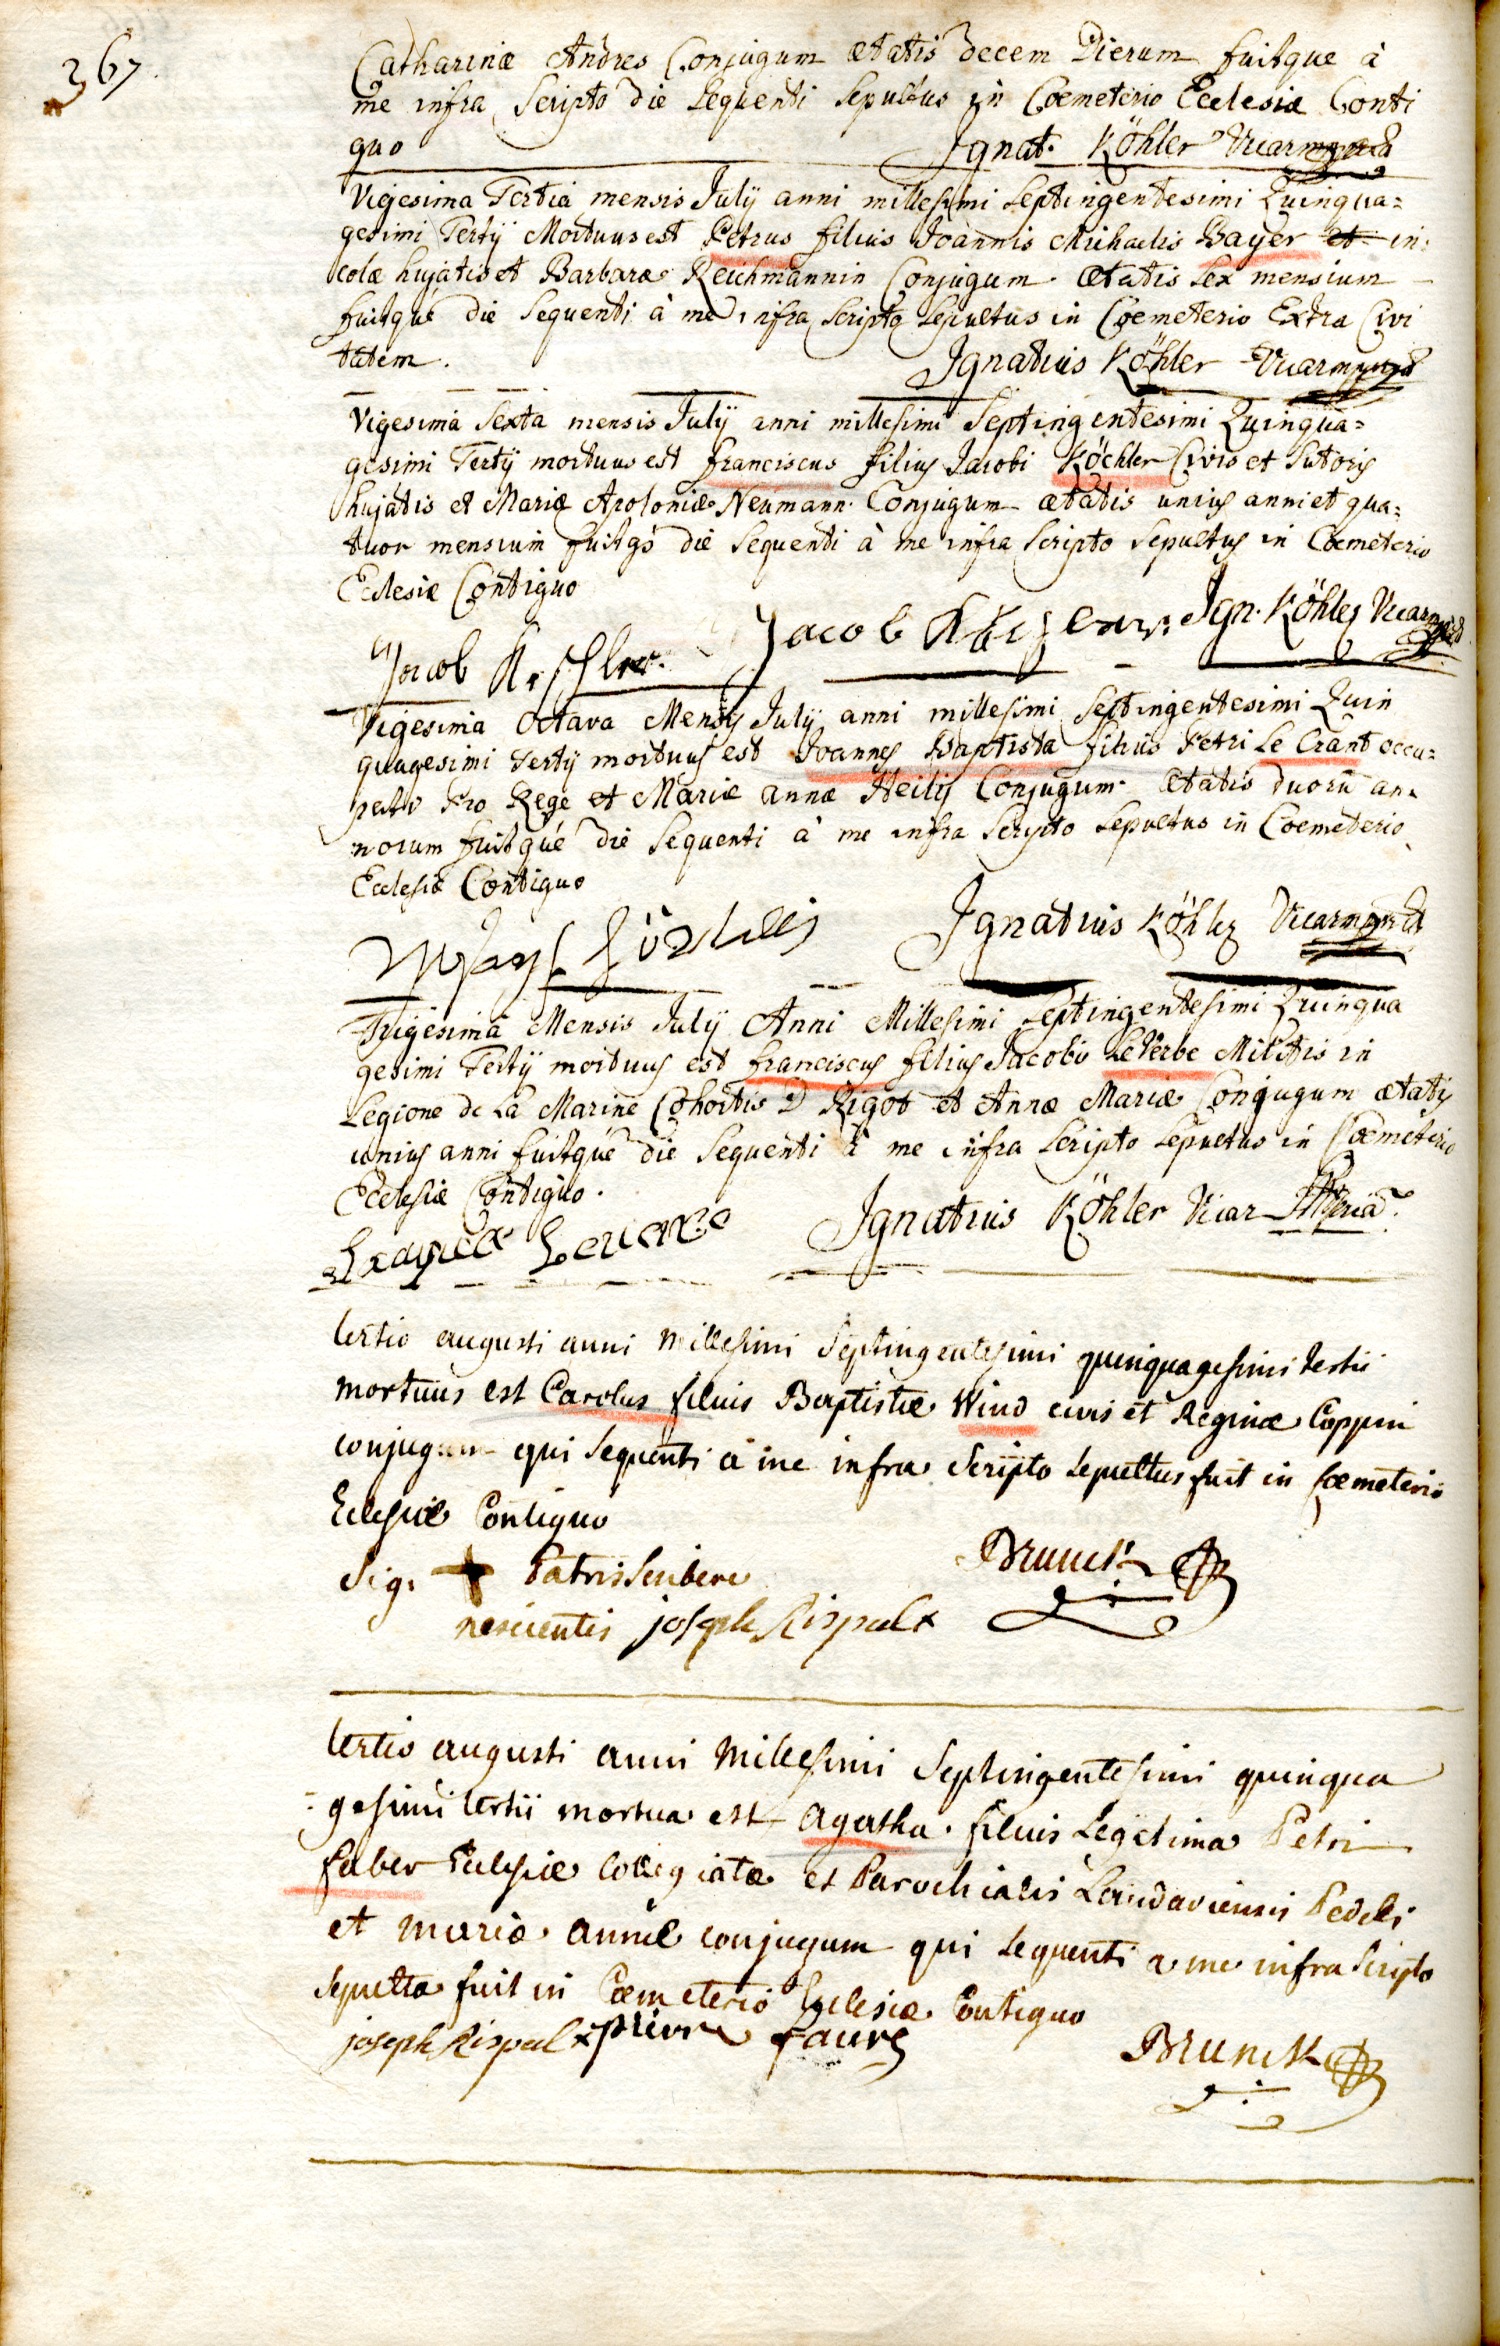 367
Catharinæ Andres Conjugum ætatis decem Dierum fuitque à
me infra Scripto die Sequenti Sepultus in Coemeterio Ecclesiæ Conti
guo Ignat. Köhler Vicar mpria
Vigesima Tertia mensis Julÿ anni millesimi Septingentesimi Quinqua=
gesimi Tertÿ Mortuus est Petrus filius Joannis Michaelis Bayer et in:
colæ hujatis et Barbaræ Reichmannin Conjugum ætatis Sex mensium
fuitque die Sequenti à me infra Scripto Sepultus in Coemeterio Extra Civi
tatem. Ignatius Köhler Vicar mpria
Vigesima Sexta mensis Julÿ anni millesimi Septingentesimi Quinqua=
gesimi Tertÿ mortuus est franciscus filius Jacobi Köchler Civis et Sutoris
hujatis et Mariæ Apoloniæ Neumann Conjugum ætatis unius anni et qua=
tuor mensium fuitqs die Sequenti à me infra Scripto Sepultus in Coemeterio
Ecclesiæ Contiguo
Jacob Jacob Ign. Köhler Vicar mpria
Vigesima Octava Mensis Julÿ anni millesimi Septingentesimi Quin
quagesimi Tertÿ mortuus est Joannes Baptista filius Petri Le Crant occu=
pato Pro Rege et Mariæ annæ Heilÿ Conjugum ætatis duorū an=
norum fuitque die Sequenti à me infra Scripto Sepultus in Coemeterio
Ecclesiæ Contiguo
Ignatius Köhler Vicar mpria
Trigesima Mensis Julÿ Anni Millesimi Septingentesimi Quinqua
gesimi Tertÿ mortuus est franciscus filius Jacobi LeVerbe Militis in
Legione de La Marine Cohortis D Rigot et Annæ Mariæ Conjugum ætatis
unius anni fuitque die Sequenti à me infra Scripto Sepultus in Coemeterio
Ecclesiæ Contiguo.
Ignatius Köhler Vicar Mpria
tertio augusti anni Millesimi Septingentesimi quinquagesimi tertii
mortuus est Carolus filius Baptistæ Wind civis et Reginæ Coppin
conjugum qui sequenti a me infra Scripto sepultus fuit in Coemeterio
Eclesiæ Contiguo
Sig. + Patris Scribere Brunck
nescientis joseph Rispal x
tertio augusti anni Millesimi Septingentesimi quinqua
=gesimi tertii mortua est Agatha filius Legitima Petri
faber Eclesiæ Collegiatæ et Parochialis Landaviensis Pedeli
et mariæ annæ conjugum qui sequenti a me infra Scripto
sepulta fuit in Coemeterio Eclesiæ Contiguo
joseph Rispal x pierre faure Brunck